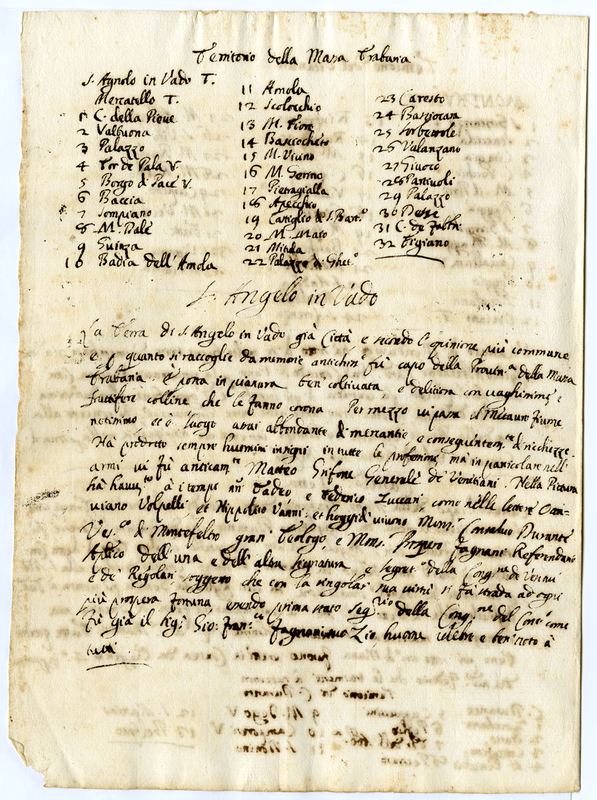 Territorio della Massa Trabaria
S. Agnolo in Vado T.
Mercatello T.
1 C. della Pieve
2 Valbuona
3 Palazzo
4 Tor de Pala V.
5 Borgo di Pace V.
6 Baccia
7 Sompiano
8 M. Dale
9 Guinza
10 Badia dell'Amola
11 Amola
12 Scolocchio
13 M. Fiore
14 Bascocheto
15 M. Vivno
16 M. Gerino
17 Pietragialla
18 Apecchio
19 Castiglio di S. Bart.º
20 M. Maro
21 Metula
22 Palazzo di Ghet.º
23 Caresto
24 Basciocara
25 Sorbetole
26 Valanzano
27 Giuoco
28 Partiuoli
29 Palazzo
30 Pesse
31 C. de
32 Figiano
S. Angelo in Vado
La Terra di S. Angelo in Vado già Città e secondo l'opinione più commune
e p quanto si raccoglie da memorie antichiss. fù capo della Prouin.ª della Massa
Trabaria. è posta in pianura ben coltivata, e delitiosa con vaghissime e
fruttifere colline che le fanno corona. Per mezzo vi passa il Metauro fiume
nettissimo, et è luogo assai abbondante di mercantie, e conseguentem.te di richezze.
Ha prodotto sempre huomini insigni in tutte le professioni, ma in particolare nell'
armi vi fù anticam.te Matteo Grifone Generale de Venetiani. Nella Pittura
hà hauuto à i tempi nri Tadeo, e Federico Zuccari, come nelle lettere Otta-
uiano Volpelli et Hippolito Vanni: et hoggidì viuono Mons. Consaluo Durante
Ves.º di Montefeltro gran Teologo, e Mons. Prospero Fagnani Referendario
dell'una e dell'altra segnatura e segret.º della Cong.ne di Vescoui
e de Regolari soggetto che con la singolar sua virtù si fa strada ad ogni
più prospera fortuna, essendo prima stato Seg.rio della Cong.ne del Conc.º come
fù già il Sig. Gio: Fran.co Fagnani suo Zio, huomo celebre e ben noto à
tutti.